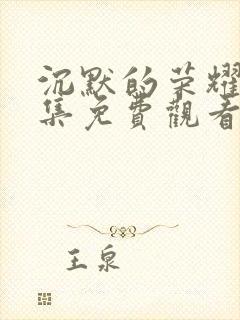 沉默的荣耀
集免費觀看
王泉